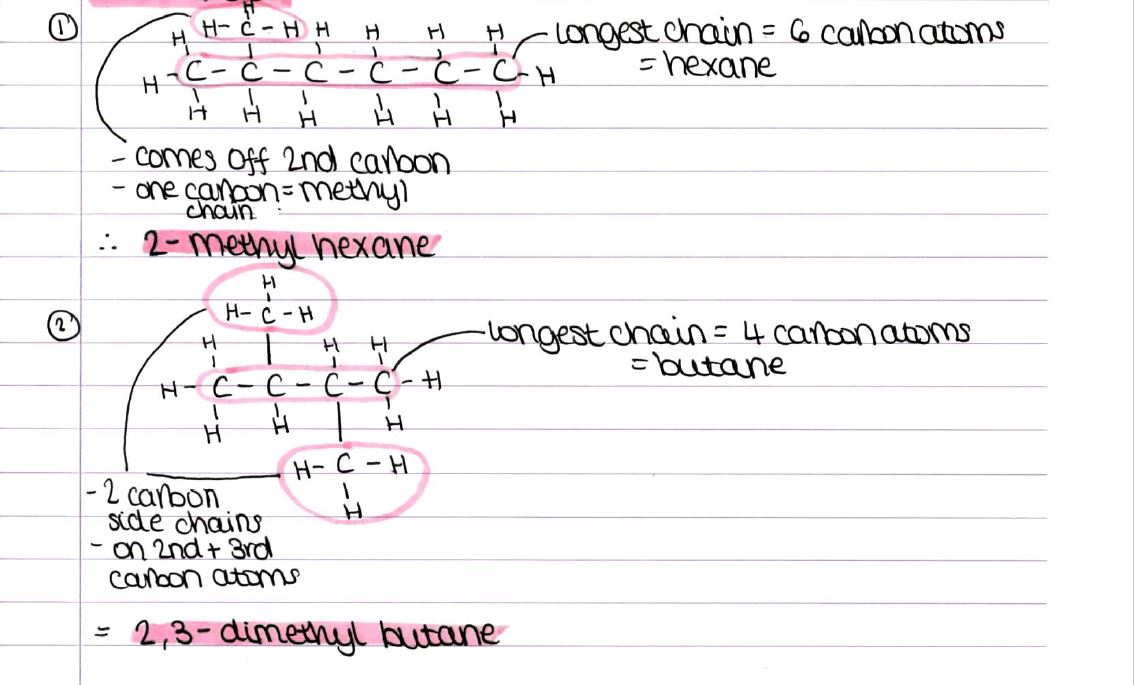 ① H
H- C - H H H H H
H longest chain = 6 carbon atoms
H - C - C - C - C - C - C - H = hexane
H H H H H H
- comes off 2nd carbon
- one carbon = methyl
chain
∴ 2-methyl hexane
H
② H- C - H
longest chain = 4 carbon atoms
H H H = butane
H- C - C - C - C - H
H H H
H- C - H
H
- 2 carbon
side chains
- on 2nd + 3rd
carbon atoms
= 2,3-dimethyl butane